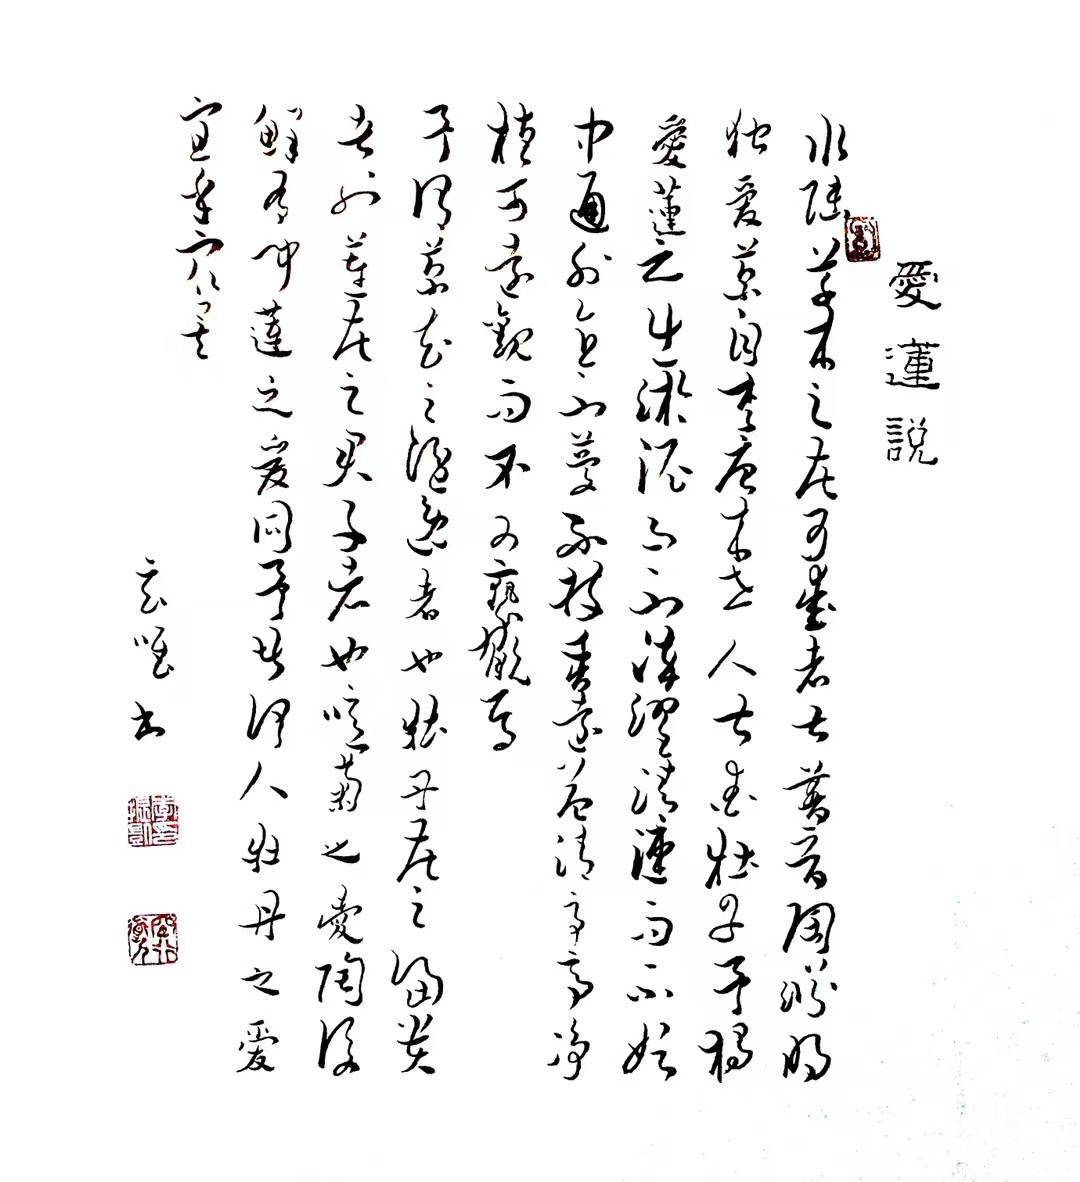 愛蓮說
水陸草木之花可愛者甚蕃晉陶淵明
独爱菊自李唐来世人甚愛牡丹予獨
愛蓮之出淤泥而不染濯清漣而不妖
中通外直不蔓不枝香遠益清亭亭净
植可遠觀而不可褻翫焉
予謂菊花之隱逸者也牡丹花之富貴
者也蓮花之君子者也噫菊之愛陶後
鮮有聞蓮之爱同予者何人牡丹之爱
宜乎眾矣
书